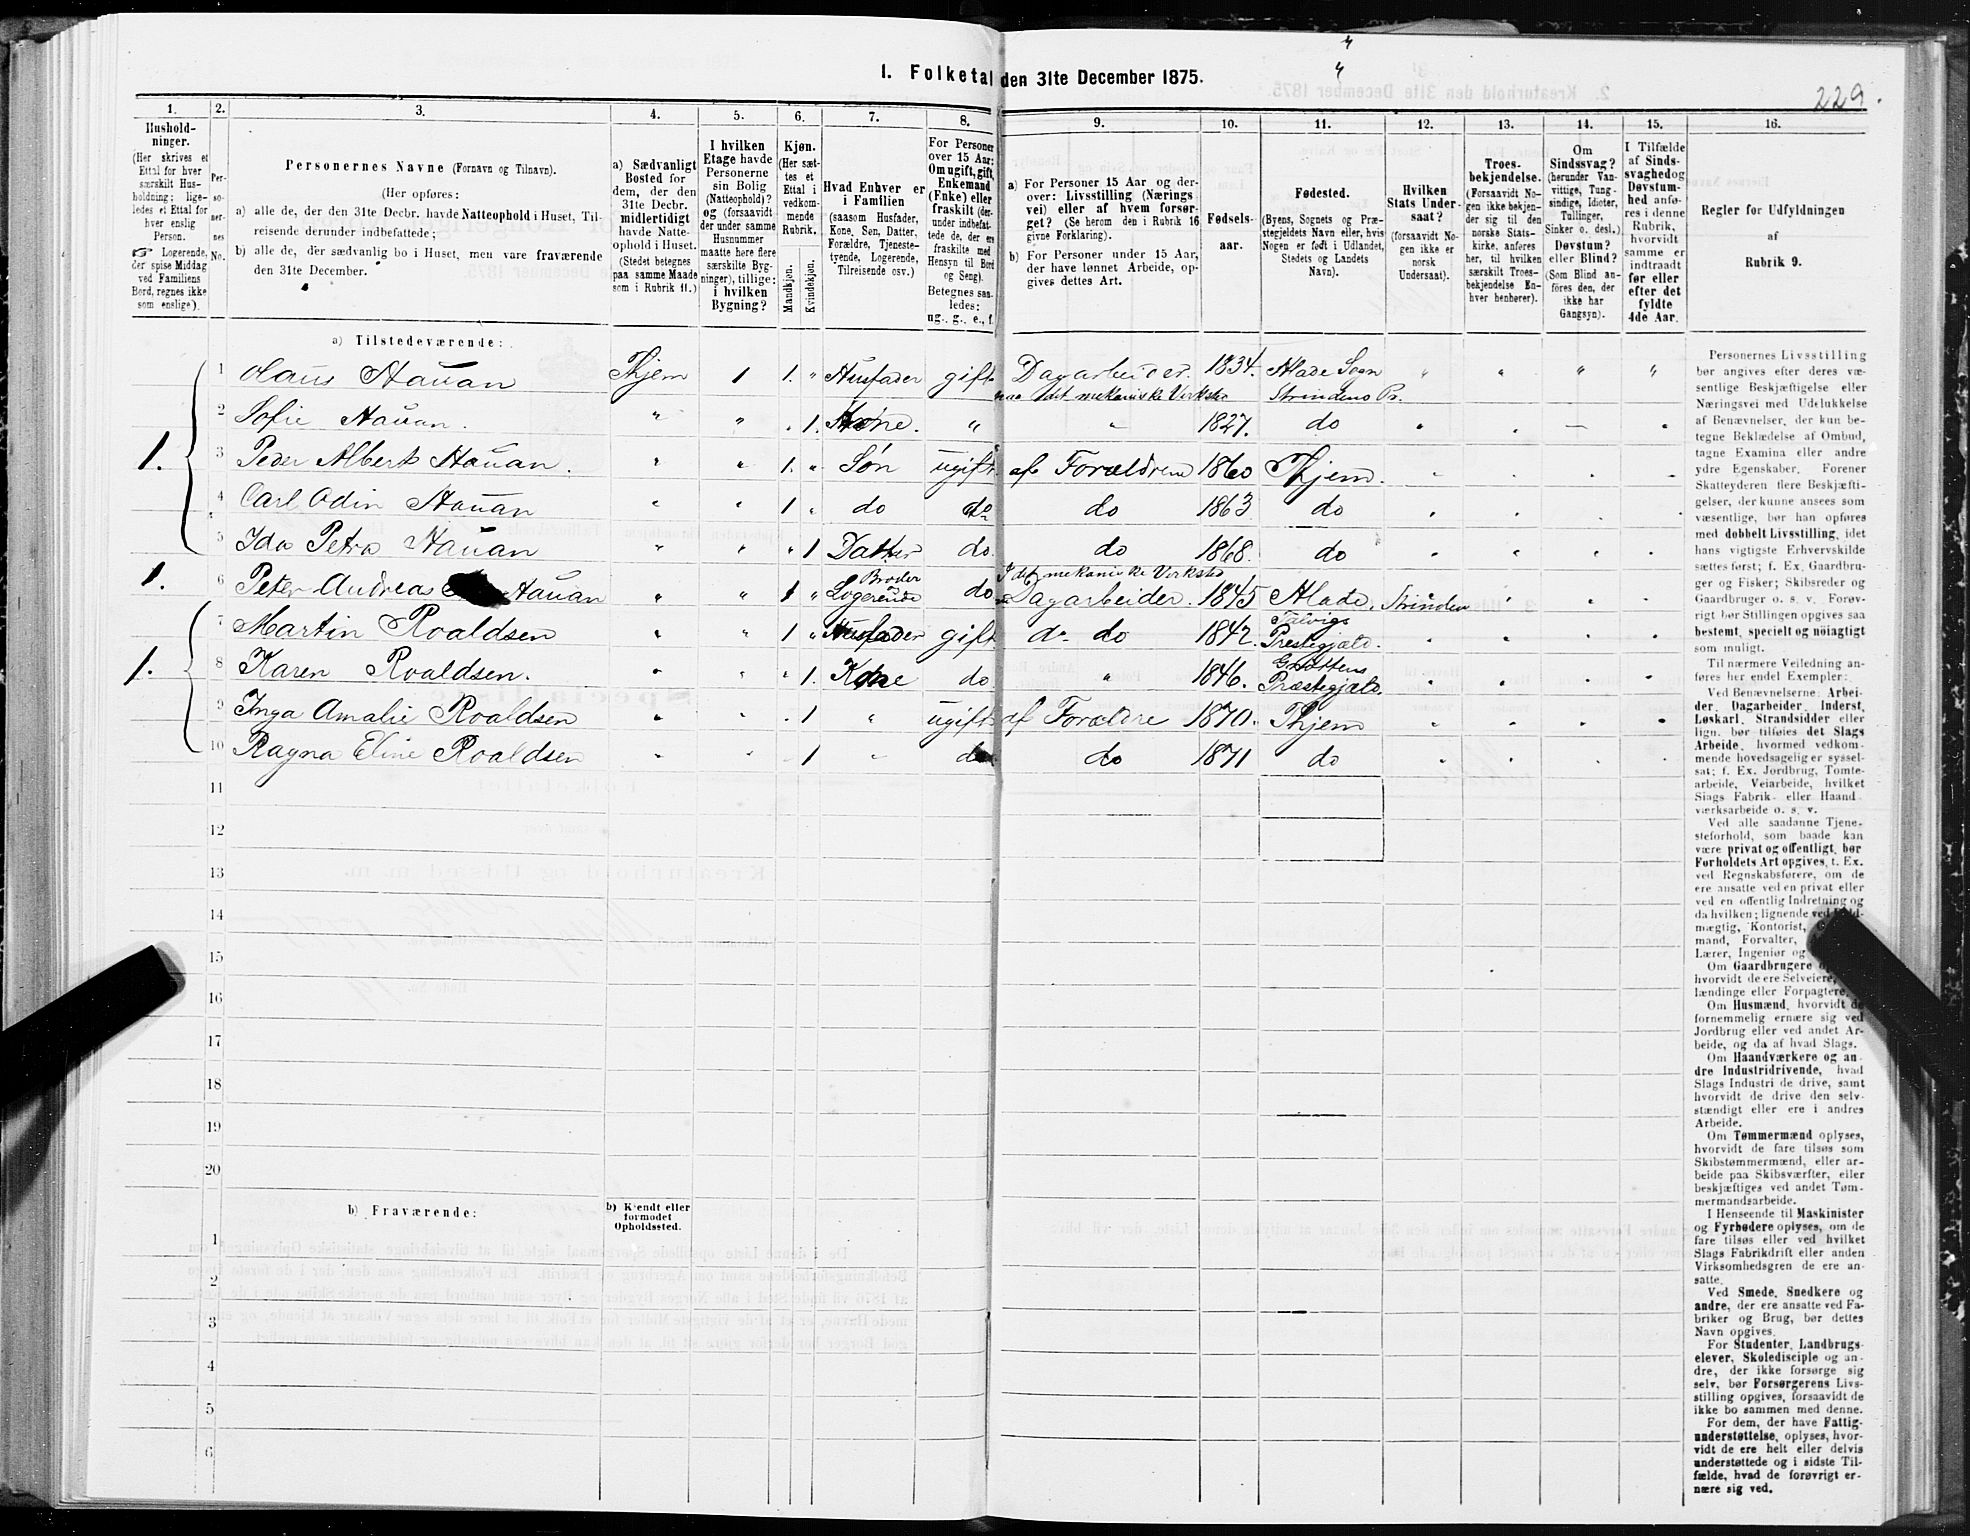 1. Folketal den 31te December 1875.
229.
1. 2. 3. 4. 5. 6. 7. 8. 9. 10. 11. 12. 13. 14. 15. 16.
Hushold-
ninger.
(Her skrives et
Ettal for hver
særskilt Hus-
holdning; lige-
ledes et Ettal for
hver enslig
Person.
☞ Logerende,
der spise Middag
ved Familiens
Bord, regnes ikke
som enslige).
Per-
so-
ner-
nes
No.
Personernes Navne (Fornavn og Tilnavn).
(Her opføres:
a) alle de, der den 31te Decbr. havde Natteophold i Huset, Til-
reisende derunder indbefattede;
b) alle de, der sædvanlig bo i Huset, men vare fraværende
den 31te December.
a) Sædvanligt
Bosted for
dem, der den
31te Decbr.
midlertidigt
havde Natte-
ophold i Huset.
(Stedet betegnes
paa samme Maade
som i Rubrik 11.)
I hvilken
Etage havde
Personerne
sin Bolig
(Natteophold)?
og (forsaavidt
der under samme
Husnummer
maatte høre flere
særskilte Byg-
ninger), tillige:
i hvilken
Bygning?
Kjøn.
(Her sæt-
tes et
Ettal i
vedkom-
mende
Rubrik.
Mandkjøn.
Kvindekjøn.
Hvad Enhver er
i Familien
(saasom Husfader,
Kone, Søn, Datter,
Forældre, Tjeneste-
tyende, Logerende,
Tilreisende osv.)
For Personer
over 15 Aar:
Om ugift, gift,
Enkemand
(Enke) eller
fraskilt (der-
under indbefat-
tede de, der ere
fraskilte med
Hensyn til Bord
og Seng).
Betegnes saa-
ledes:
ug., g., e., f.
a) For Personer 15 Aar og der-
over: Livsstilling (Nærings
vei) eller af hvem forsør-
get? (Se herom den i Rubrik 16
givne Forklaring).
b) For Personer under 15 Aar,
der have lønnet Arbeide, op-
gives dettes Art.
Fødsels-
aar.
Fødested.
(Byens, Sognets og Præ-
stegjeldets Navn eller, hvis
Nogen er født i Udlandet,
Stedets og Landets
Navn).
Hvilken
Stats Under-
saat?
(forsaavidt No-
gen ikke er
norsk
Undersaat).
Troes-
bekjendelse.
(Forsaavidt No-
gen ikke bekjen-
der sig til den
norske Stats-
kirke, anføres
her, til hvilken
særskilt Troes-
bekjendelse En-
hver henhører).
Om
Sindssvag?
(herunder Van-
vittige, Tung-
sindige, Idioter,
Tullinger,
Sinker o. desl.)
Døvstum?
eller Blind?
(Som Blind an-
føres den, der
ikke har
Gangsyn).
I Tilfælde
af Sinds-
svaghed og
Døvstum-
hed anfø-
res i denne
Rubrik,
hvorvidt
samme er
indtraadt
før eller
efter det
fyldte
4de Aar.
Regler for Udfyldningen
af
Rubrik 9.
a) Tilstedeværende:
1 Claus Hauan Thjem 1 1. " Husfader gift Dagarbeider. 1834. Hlade Sogn " " " "
paa det mekaniske Virksted Strindens Pr.
2 Sofie Hauan. " " " 1. Kone. " " 1827. do
1. 3 Peder Albert Hauan. " " 1. " Søn ugift af Forældrene 1860 Thjem.
4 Carl Odin Hauan " " 1 " do do do 1863 do
5 Ida Petra Hauan " " " 1 Datter do do 1868. do
I det mekaniske Virksted
1. 6 Peter Andreas Hauan " " 1 " Broder Logerende do Dagarbeider. 1845 Hlade, Strinden
7 Martin Roaldsen " " 1 " Husfader gift do do 1842. Talvigs Prestegjæld.
1. 8 Karen Roaldsen. " " " 1. Kone do " 1846. Præstegjæld
9 Inga Amalie Roaldsen " " " 1 " ugift af Forældre 1870. Thjem
10 Ragna Eline Roaldsen " " " 1 " do do 1871 do
11
12
13
14
15
16
17
18
19
20
b) Fraværende:
b) Kjendt eller
formodet
Opholdssted.
1
2
3
4
5
6
Personernes Livsstilling
bør angives efter deres væ-
sentlige Beskjæftigelse eller
Næringsvei med Udelukkelse
af Benævnelser, der kun be-
tegne Beklædelse af Ombud,
tagne Examina eller andre
ydre Egenskaber. Forener
Skatteyderen flere Beskjæfti-
gelser, der kunne ansees som
væsentlige, bør han opføres
med dobbelt Livsstilling, idet
hans vigtigste Erhvervskilde
sættes først; f. Ex. Gaardbru-
ger og Fisker; Skibsreder og
Gaardbruger o. s. v. Forøv-
rigt bør Stillingen opgives saa
bestemt, specielt og nöiagtigt
som muligt.
Til nærmere Veiledning an-
føres her endel Exempler:
Ved Benævnelserne: Arbei-
der, Dagarbeider, Inderst,
Løskarl, Strandsidder eller
lign. bør tilføies det Slags
Arbeide, hvormed vedkom-
mende hovedsagelig er syssel-
sat; f. Ex. Jordbrug, Tomte-
arbeide, Veiarbeide, hvilket
Slags Fabrik- eller Haand-
værksarbeide o. s. v.
Ved alle saadanne Tjene-
steforhold, som baade kan
være privat og offentligt, bør
Forholdets Art opgives, t. Ex.
ved Regnskabsførere, om de
ere ansatte ved en privat eller
ved en offentlig Indretning og
da hvilken; lignende ved Fuld-
mægtig, Kontorist,
mand, Forvalter,
Lærer, Ingeniør og
Om Gaardbrugere
hvorvidt de ere Selveiere,
lændinge eller Forpagtere.
Om Husmænd, hvorvidt de
fornemmelig ernære sig ved
Jordbrug eller ved andet Ar-
beide, og da af hvad Slags.
Om Haandværkere og an-
dre Industridrivende, hvad
Slags Industri de drive, samt
hvorvidt de drive den selv-
stændigt eller ere i andres
Arbeide.
Om Tømmermænd oplyses,
hvorvidt de fare tilsøs som
Skibstømmermænd, eller ar-
beide paa Skibsværfter, eller
beskjæftiges ved andet Tøm-
mermandsarbeide.
I Henseende til Maskinister
og Fyrbødere oplyses, om de
fare tilsøs eller ved hvilket
Slags Fabrikdrift eller anden
Virksomhedsgren de ere an-
satte.
Ved Smede, Snedkere og
andre, der ere ansatte ved Fa-
briker og Brug, bør dettes
Navn opgives.
For Studenter, Landbrugs-
elever, Skoledisciple og an-
dre, der ikke forsørge sig
selv, bør Forsørgerens Livs-
stilling opgives, forsaavidt de
ikke bo sammen med denne.
For dem, der have Fattig-
understøttelse, oplyses, hvor-
vidt de ere helt eller delvis
understøttede og i sidste Til-
fælde, hvad de forøvrigt er-
nære sig ved.